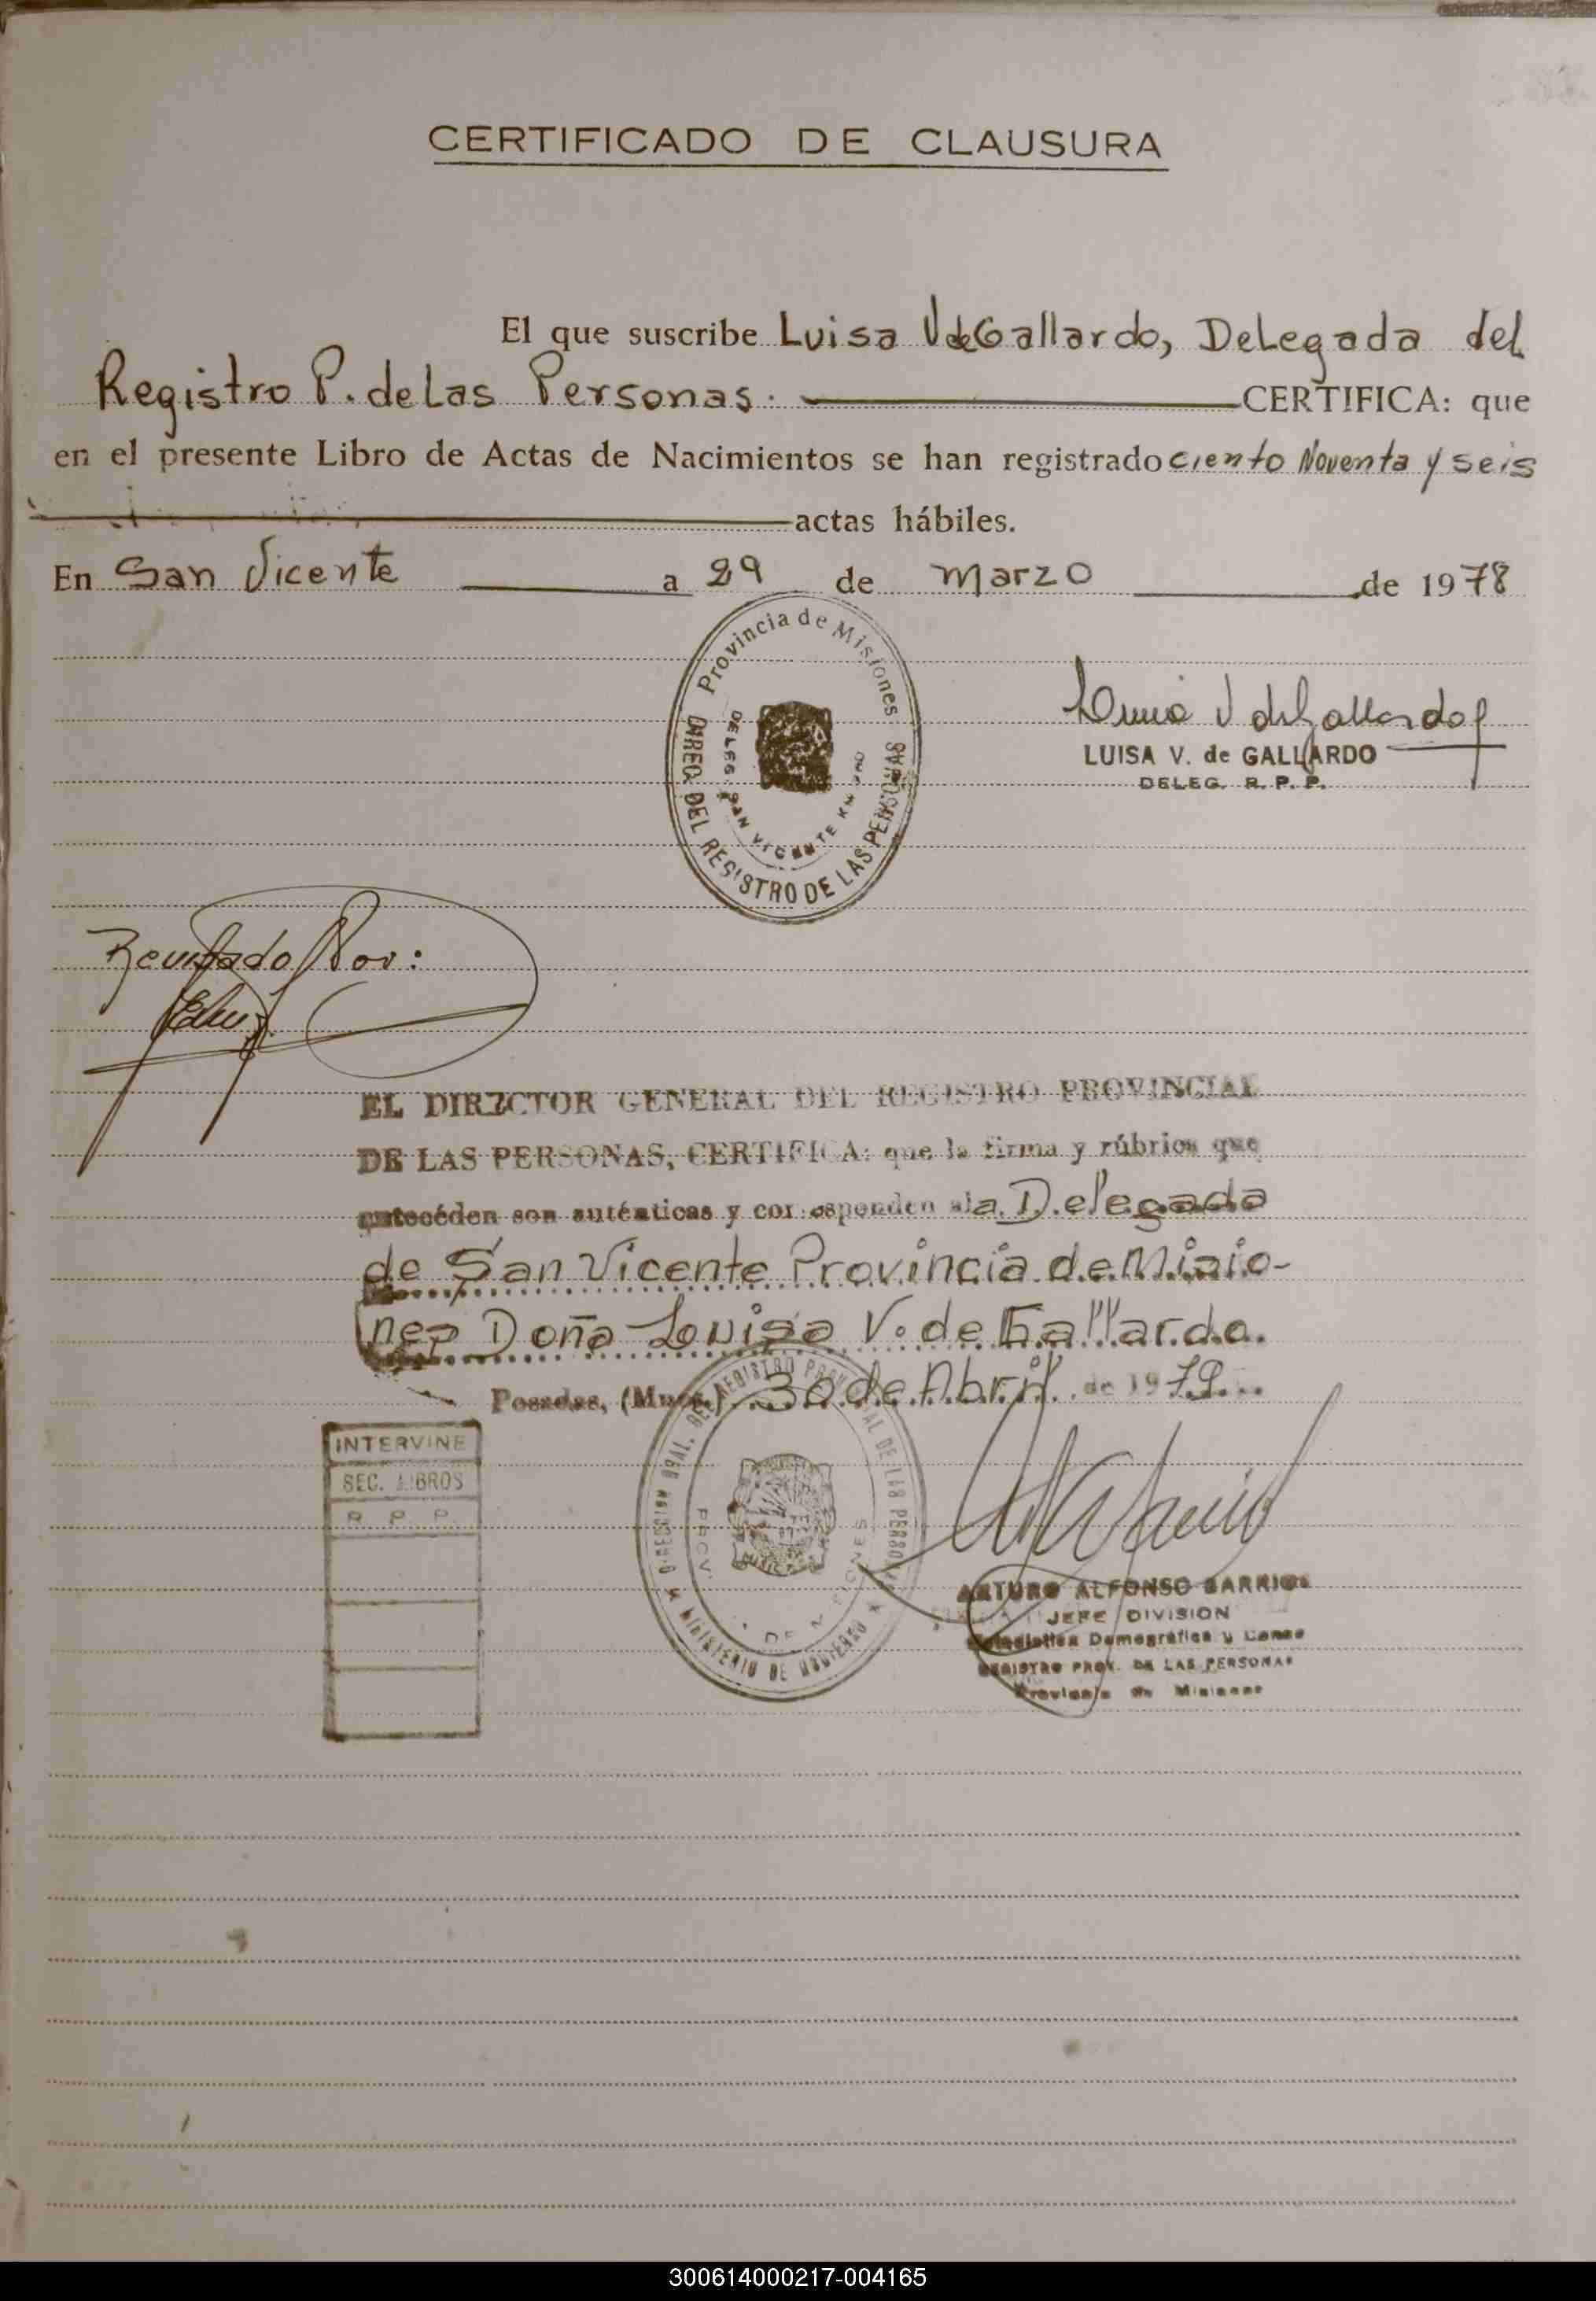 CERTIFICADO DE CLAUSURA
El que suscribe Luisa V de Gallardo, Delegada del
Registro P. de Las Personas. CERTIFICA: que
en el presente Libro de Actas de Nacimientos se han registrado ciento Noventa y seis
actas hábiles.
En San Vicente a 29 de Marzo de 1978
Provincia de Misiones
DIREC. DEL REGISTRO DE LAS PERSONAS
DELEG. SAN VICENTE
Luisa V de Gallardo
LUISA V. de GALLARDO
DELEG. R. P. P.
Por:
EL DIRECTOR GENERAL DEL REGISTRO PROVINCIAL
DE LAS PERSONAS, CERTIFICA: que la firma y rúbrica que
antecéden son auténticas y corresponden a la Delegada
de San Vicente Provincia de Misio-
nes Doña Louisa V. de Gallardo.
Posadas, (Mnes.) 30 de Abril de 1979
INTERVINE
SEC. LIBROS
R P P
DIRECCION GRAL. DEL REGISTRO PROVINCIAL DE LAS PERSONAS
MINISTERIO DE GOBIERNO
PROV. DE MISIONES
ARTURO ALFONSO BARRIOS
JEFE DIVISION
Estadistica Demográfica y Censo
REGISTRO PROV. DE LAS PERSONAS
Provincia de Misiones
300614000217-004165